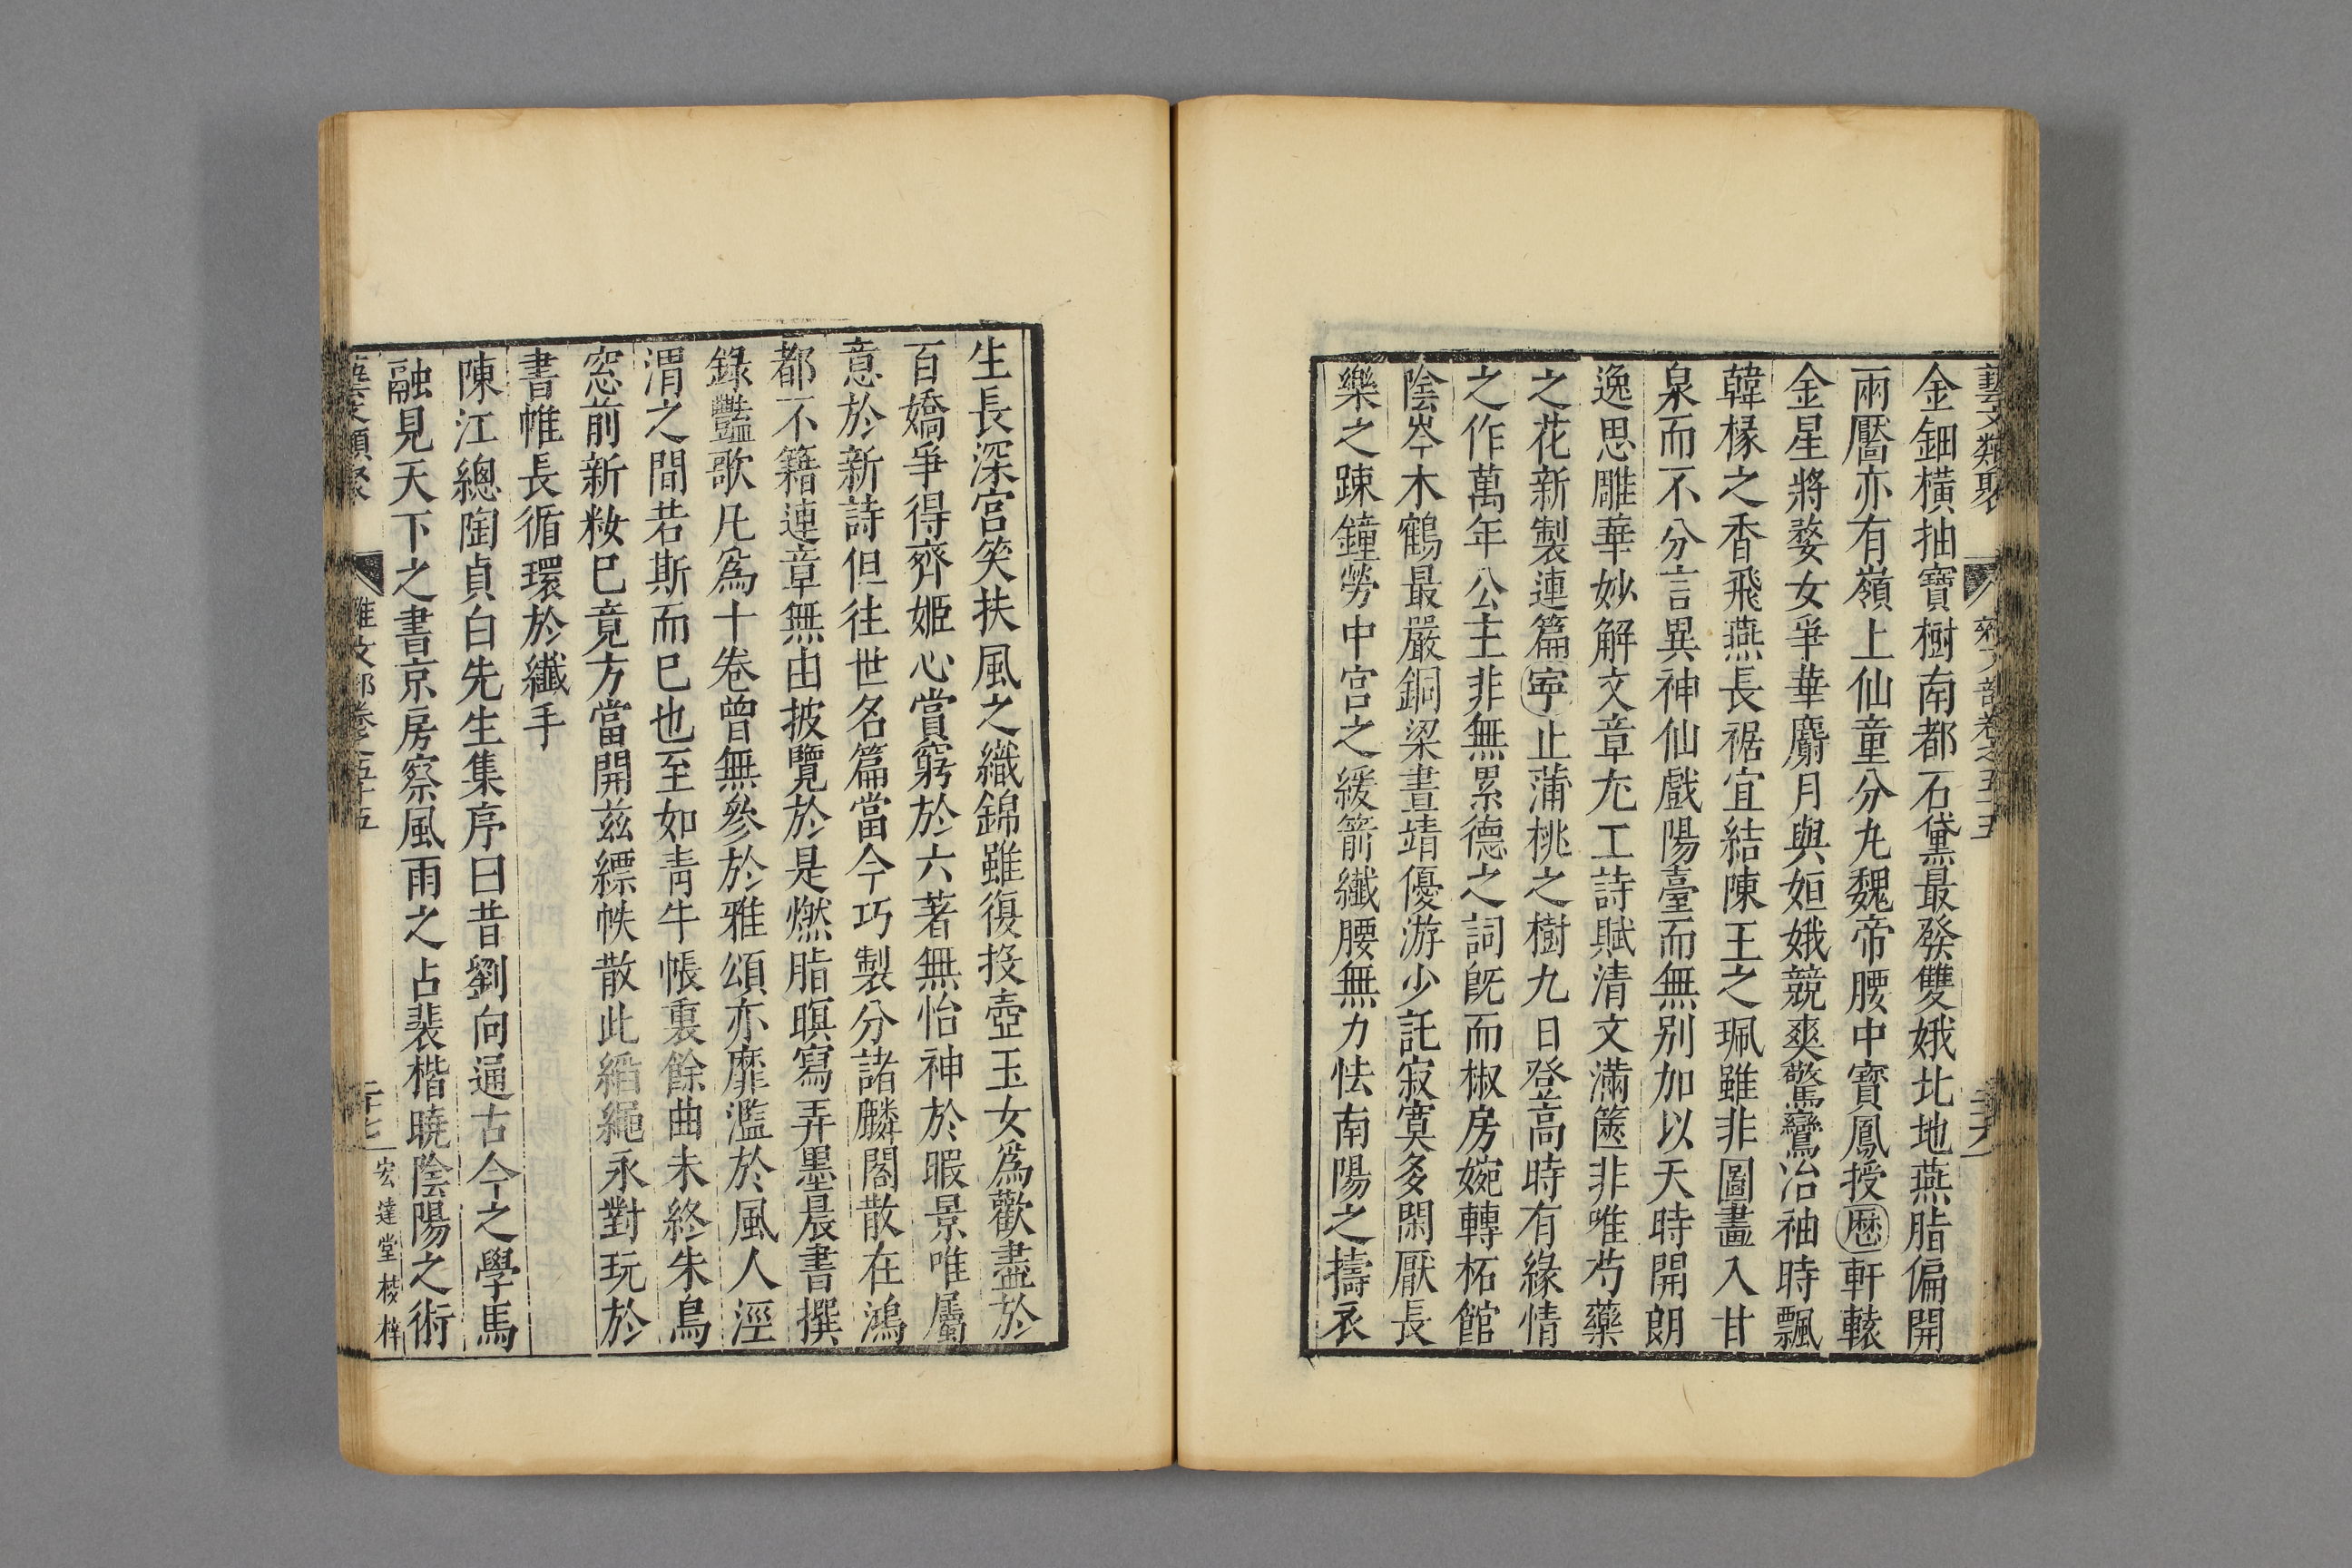 藝文類聚 雜文部卷之五十五
金鈿橫抽寶樹南都石黛最發雙娥北地燕脂偏開
兩靨亦有嶺上仙童分丸魏帝腰中寳鳳授曆軒轅
金星將婺女爭華麝月與姮娥競爽驚鸞冶袖時飄
韓椽之香飛燕長裾宜結陳王之珮雖非圖畫入甘
泉而不分言異神仙戲陽臺而無别加以天時開朗
逸思雕華妙解文章尢工詩賦清文滿篋非唯芍藥
之花新製連篇寧止蒲桃之樹九日登高時有緣情
之作萬年公主非無累德之詞旣而椒房婉轉柘館
陰岑木鶴最嚴銅梁晝靖優游少託寂寞多閑厭長
樂之踈鐘勞中宮之緩箭纎腰無力怯南陽之擣衣
生長深宮笑扶風之織錦雖復投壺玉女為歡盡於
百嬌爭得齊姬心賞窮於六著無怡神於暇景唯屬
意於新詩但往世名篇當今巧製分諸麟閣散在鴻
都不籍連章無由披覽於是燃脂暝寫弄墨晨書撰
錄豔歌凡為十卷曾無參於雅頌亦靡濫於風人涇
渭之間若斯而已也至如青牛帳裏餘曲未終朱鳥
窓前新粧已竟方當開茲縹帙散此縚繩永對玩於
書帷長循環於纎手
陳江總陶貞白先生集序曰昔劉向通古今之學馬
融見天下之書京房察風雨之占裴楷曉陰陽之術
藝文類聚 雜文部卷之五十五 二十七 宏達堂棱梓